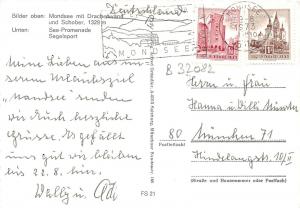 Bilder oben: Mondsee mit Drachenwand
und Schober, 1328 m
Unten: See-Promenade
Segelsport
Deutschland
MONDSEE
B 32082
Meine Lieben aus un-
serem Urlaub aus
"Mondsee" senden
wir Euch herzliche
Grüsse. Es gefällt
uns gut wir bleiben
bis 22. 8. hier.
Wally u. Adi
Herrn u. Frau
Hanna u Willi Münster
80 München 71
Postleitzahl
Hindelangstr. 10/II
(Straße und Hausnummer oder Postfach)
FS 21